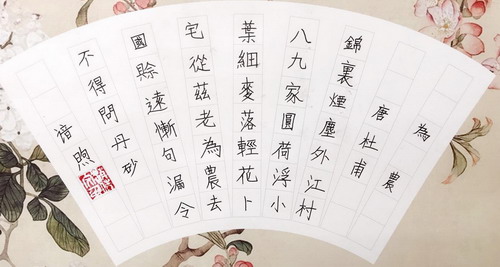 為農
唐杜甫
錦裏煙塵外江村
八九家圓荷浮小
葉細麥落輕花卜
宅從茲老為農去
國賒遠慚句漏令
不得問丹砂
煦